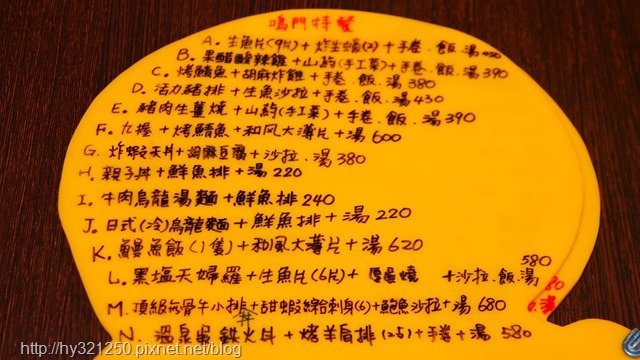 鳴門特餐
A. 生魚片(9片)+炸生蠔(2)+手卷.飯.湯
B. 果醋酸辣雞+山葯(手工菜)+手卷.飯.湯390
C. 烤鯖魚+胡麻炸雞+手卷.飯.湯380
D. 活力豬排+生魚沙拉+手卷.飯.湯430
E. 豬肉生薑燒+山葯(手工菜)+手卷.飯.湯390
F. 九握+烤鯖魚+和風大薄片+湯600
G. 炸蝦天丼+胡麻豆腐+沙拉.湯380
H. 親子丼+鮮魚排+湯220
I. 牛肉烏龍湯麵+鮮魚排240
J. 日式(冷)烏龍麵+鮮魚排+湯220
K. 鰻魚飯(1隻)+和風大薄片+湯620
580
L. 黑塩天婦羅+生魚片(6片)+ +沙拉.飯.湯
M. 頂級無骨牛小排+甜蝦 刺身(6)+鮑魚沙拉+湯680
湯
丼
N. 溫泉蛋 火片+烤羊肩排 +手卷+湯580
http://hy321250.pixnet.net/blog